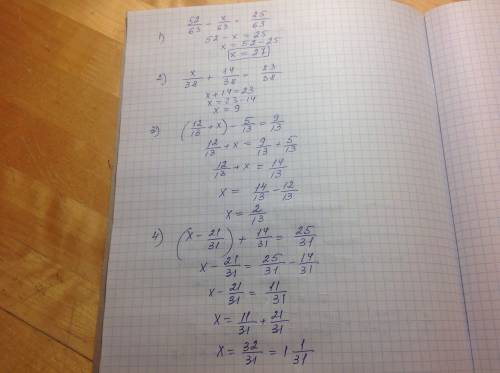 1) 52/63 - x/63 = 25/63
52 - x = 25
x = 52 - 25
x = 27
2) x/38 + 14/38 = 23/38
x + 14 = 23
x = 23 - 14
x = 9
3) (12/13 + x) - 5/13 = 9/13
12/13 + x = 9/13 + 5/13
12/13 + x = 14/13
x = 14/13 - 12/13
x = 2/13
4) (x - 21/31) + 14/31 = 25/31
x - 21/31 = 25/31 - 14/31
x - 21/31 = 11/31
x = 11/31 + 21/31
x = 32/31 = 1 1/31